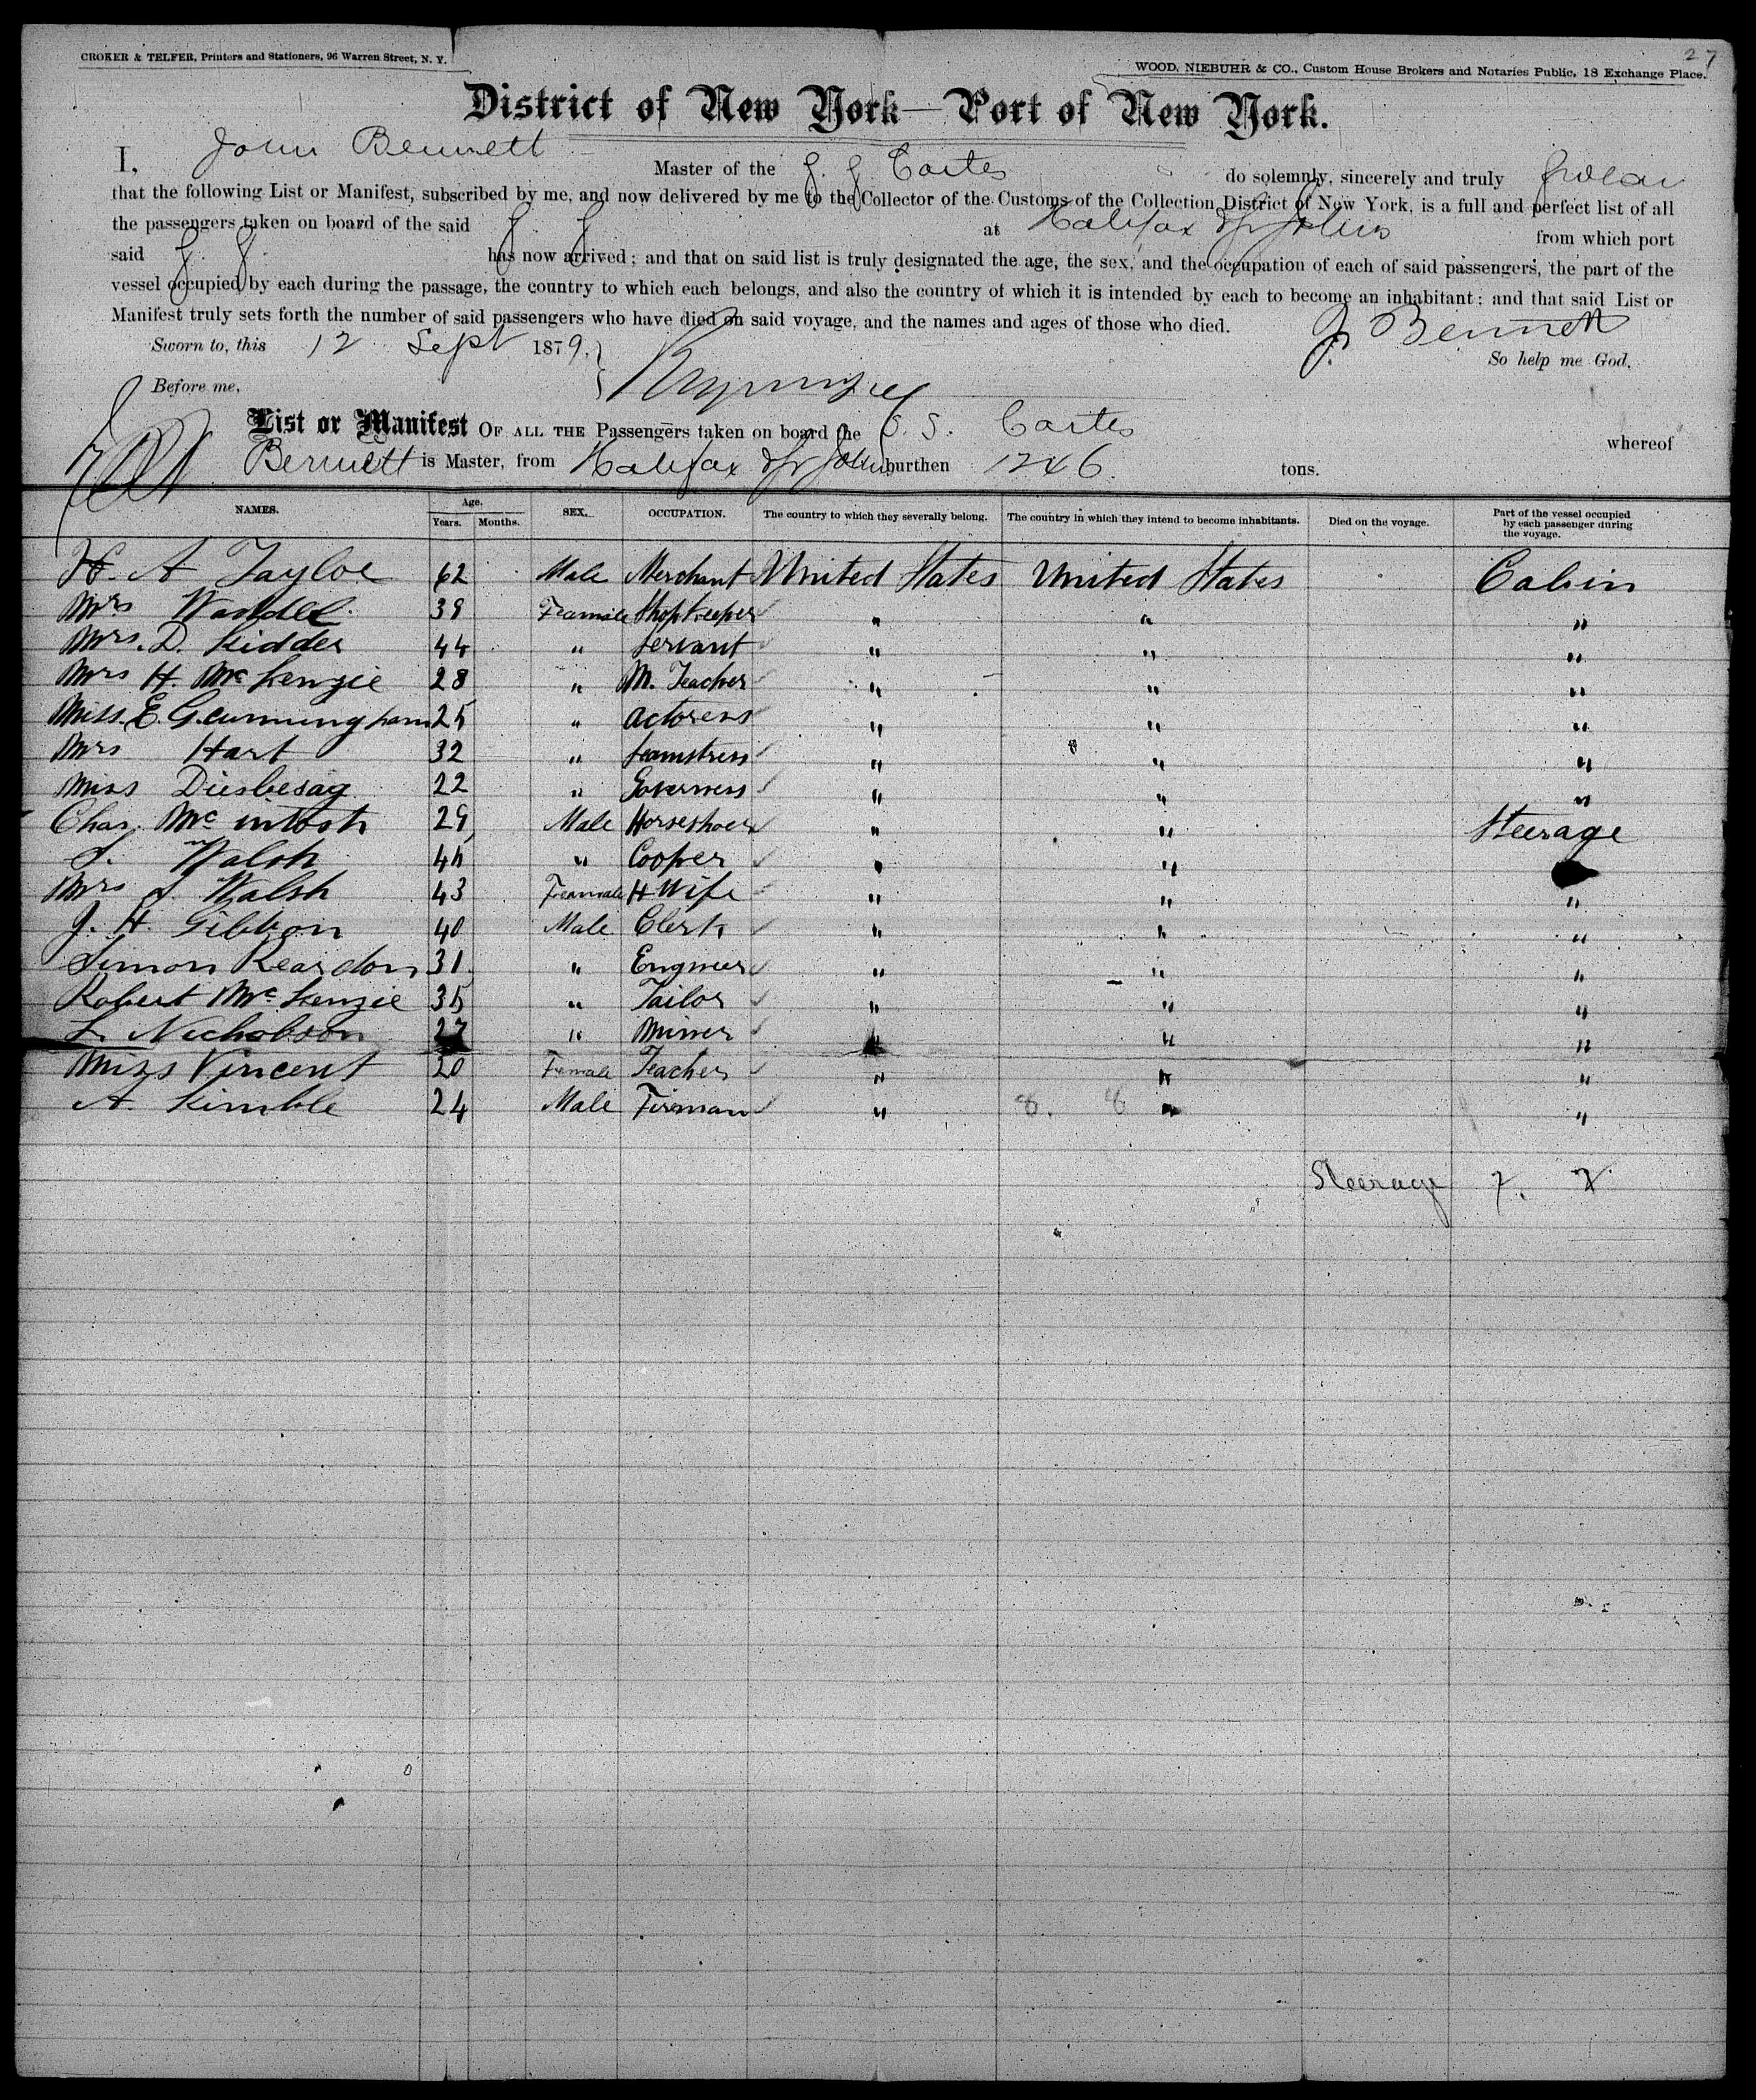 27
CROKER & TELFER, Printers and Stationers, 96 Warren Street, N. Y.
WOOD, NIEBUHR & CO., Custom House Brokers and Notaries Public, 18 Exchange Place.
District of New York—Port of New York.
I, John Bennett Master of the S. S. Cortes do solemnly, sincerely and truly swear
that the following List or Manifest, subscribed by me, and now delivered by me to the Collector of the Customs of the Collection District of New York, is a full and perfect list of all
the passengers taken on board of the said S. S. at Halifax & St Johns from which port
said S. S. has now arrived; and that on said list is truly designated the age, the sex, and the occupation of each of said passengers, the part of the
vessel occupied by each during the passage, the country to which each belongs, and also the country of which it is intended by each to become an inhabitant; and that said List or
Manifest truly sets forth the number of said passengers who have died on said voyage, and the names and ages of those who died.
J. Bennett
Sworn to, this 12 Sept 1879. So help me God.
Before me,
List or Manifest OF ALL THE Passengers taken on board the S. S. Cortes whereof
Bennett is Master, from Halifax & St Johns burthen 1246. tons.
NAMES. Age. Years. Months. SEX. OCCUPATION. The country to which they severally belong. The country in which they intend to become inhabitants. Died on the voyage. Part of the vessel occupied by each passenger during the voyage.
H. A Taylor 62 Male Merchant United States United States Cabin
Mrs 38 Feamale Shopkeeper " " "
Mrs. D. Kidder 44 " Servant " " "
Mrs H. McKenzie 28 " M. Teacher " " "
Miss. E. G. cunningham 25 " actoress " " "
Mrs Hart 32 " seamstress " " "
Miss 22 " Governess " " "
Chas. Mc intosh 29 Male Horseshoer " " Steerage
S. Walsh 45 " Cooper " "
Mrs S. Walsh 43 Feamale H Wife " " "
J. H. Gibbon 40 Male Clerk " " "
Simon Reardon 31 " Engineer " " "
Robert McKenzie 35 " Tailor " " "
L. Nicholson 27 " Miner " " "
Miss Vincent 20 Female Teacher " " "
A. Kimble 24 Male Firman " 8. 8 " "
Steerage 7.